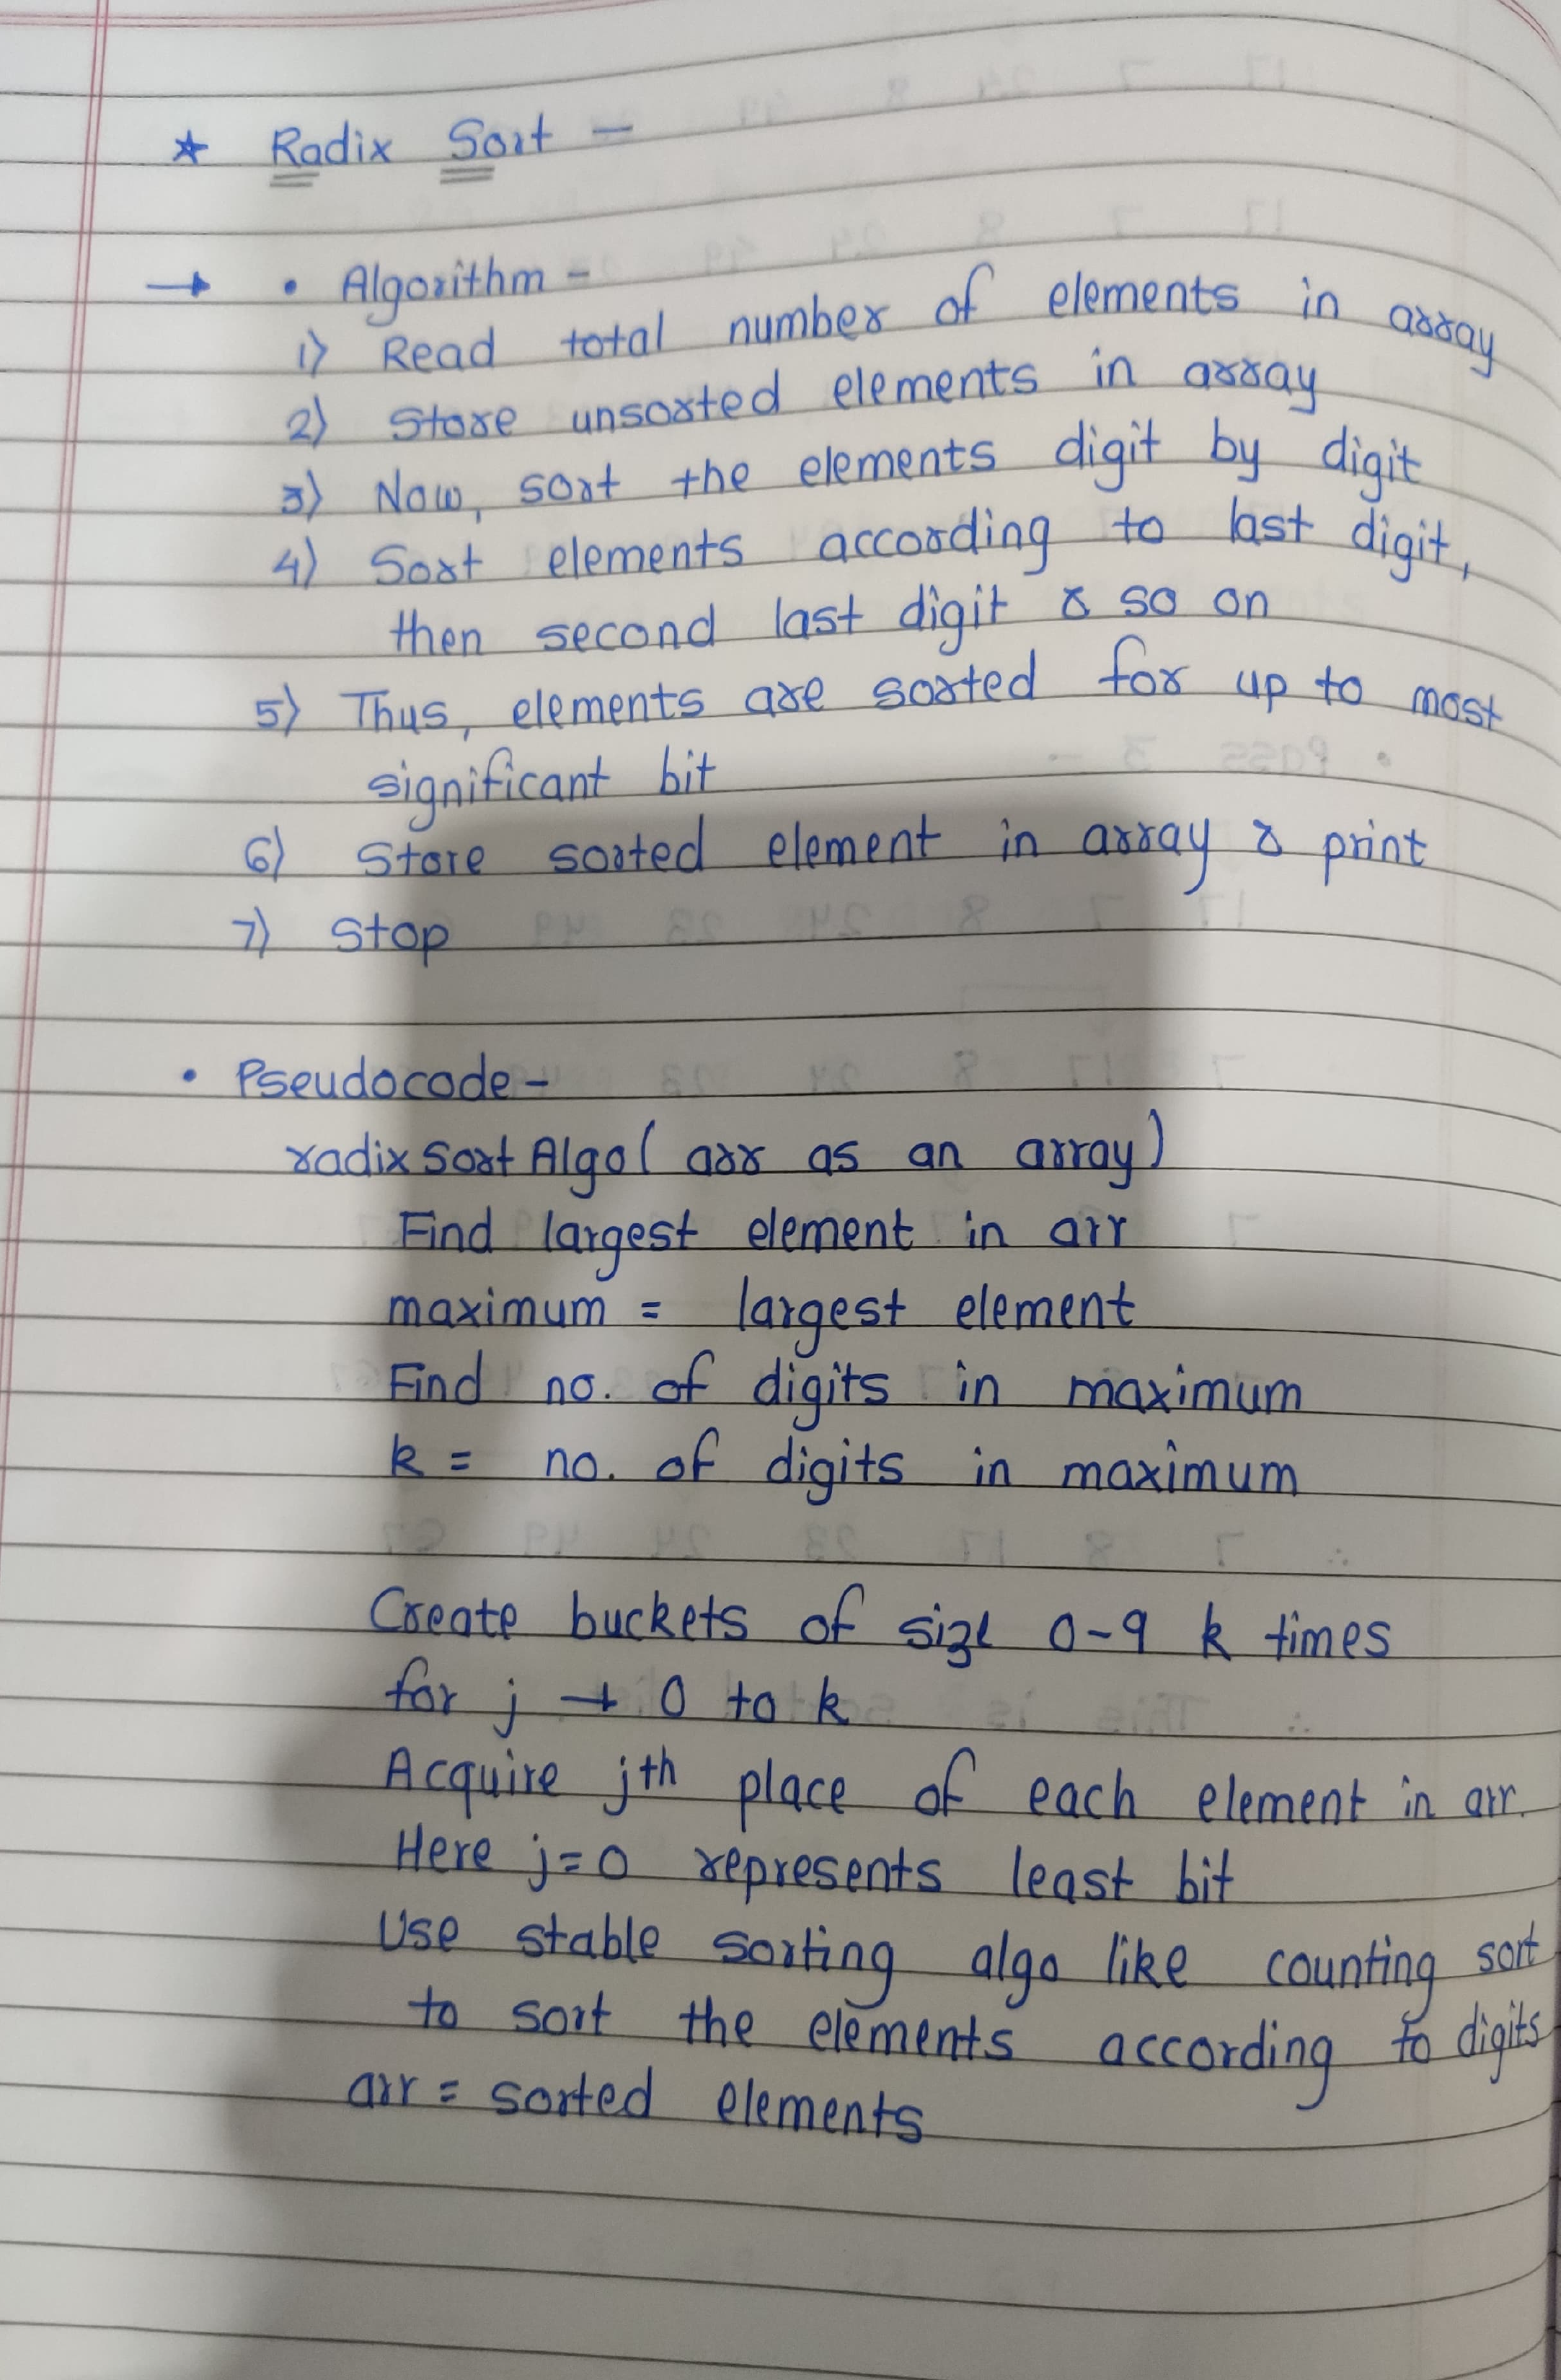 * Radix Sort -
→ • Algorithm -
1) Read total number of elements in array
2) Store unsorted elements in array
3) Now, sort the elements digit by digit
4) Sort elements according to last digit,
then second last digit & so on
5) Thus, elements are sorted for up to most
significant bit
6) Store sorted element in array & print
7) Stop
• Pseudocode -
radixSortAlgo( arr as an array)
Find largest element in arr
maximum = largest element
Find no. of digits in maximum
k = no. of digits in maximum
Create buckets of size 0-9 k times
for j → 0 to k
Acquire jth place of each element in arr.
Here j=0 represents least bit
Use stable sorting algo like counting sort
to sort the elements according to digits
arr = sorted elements